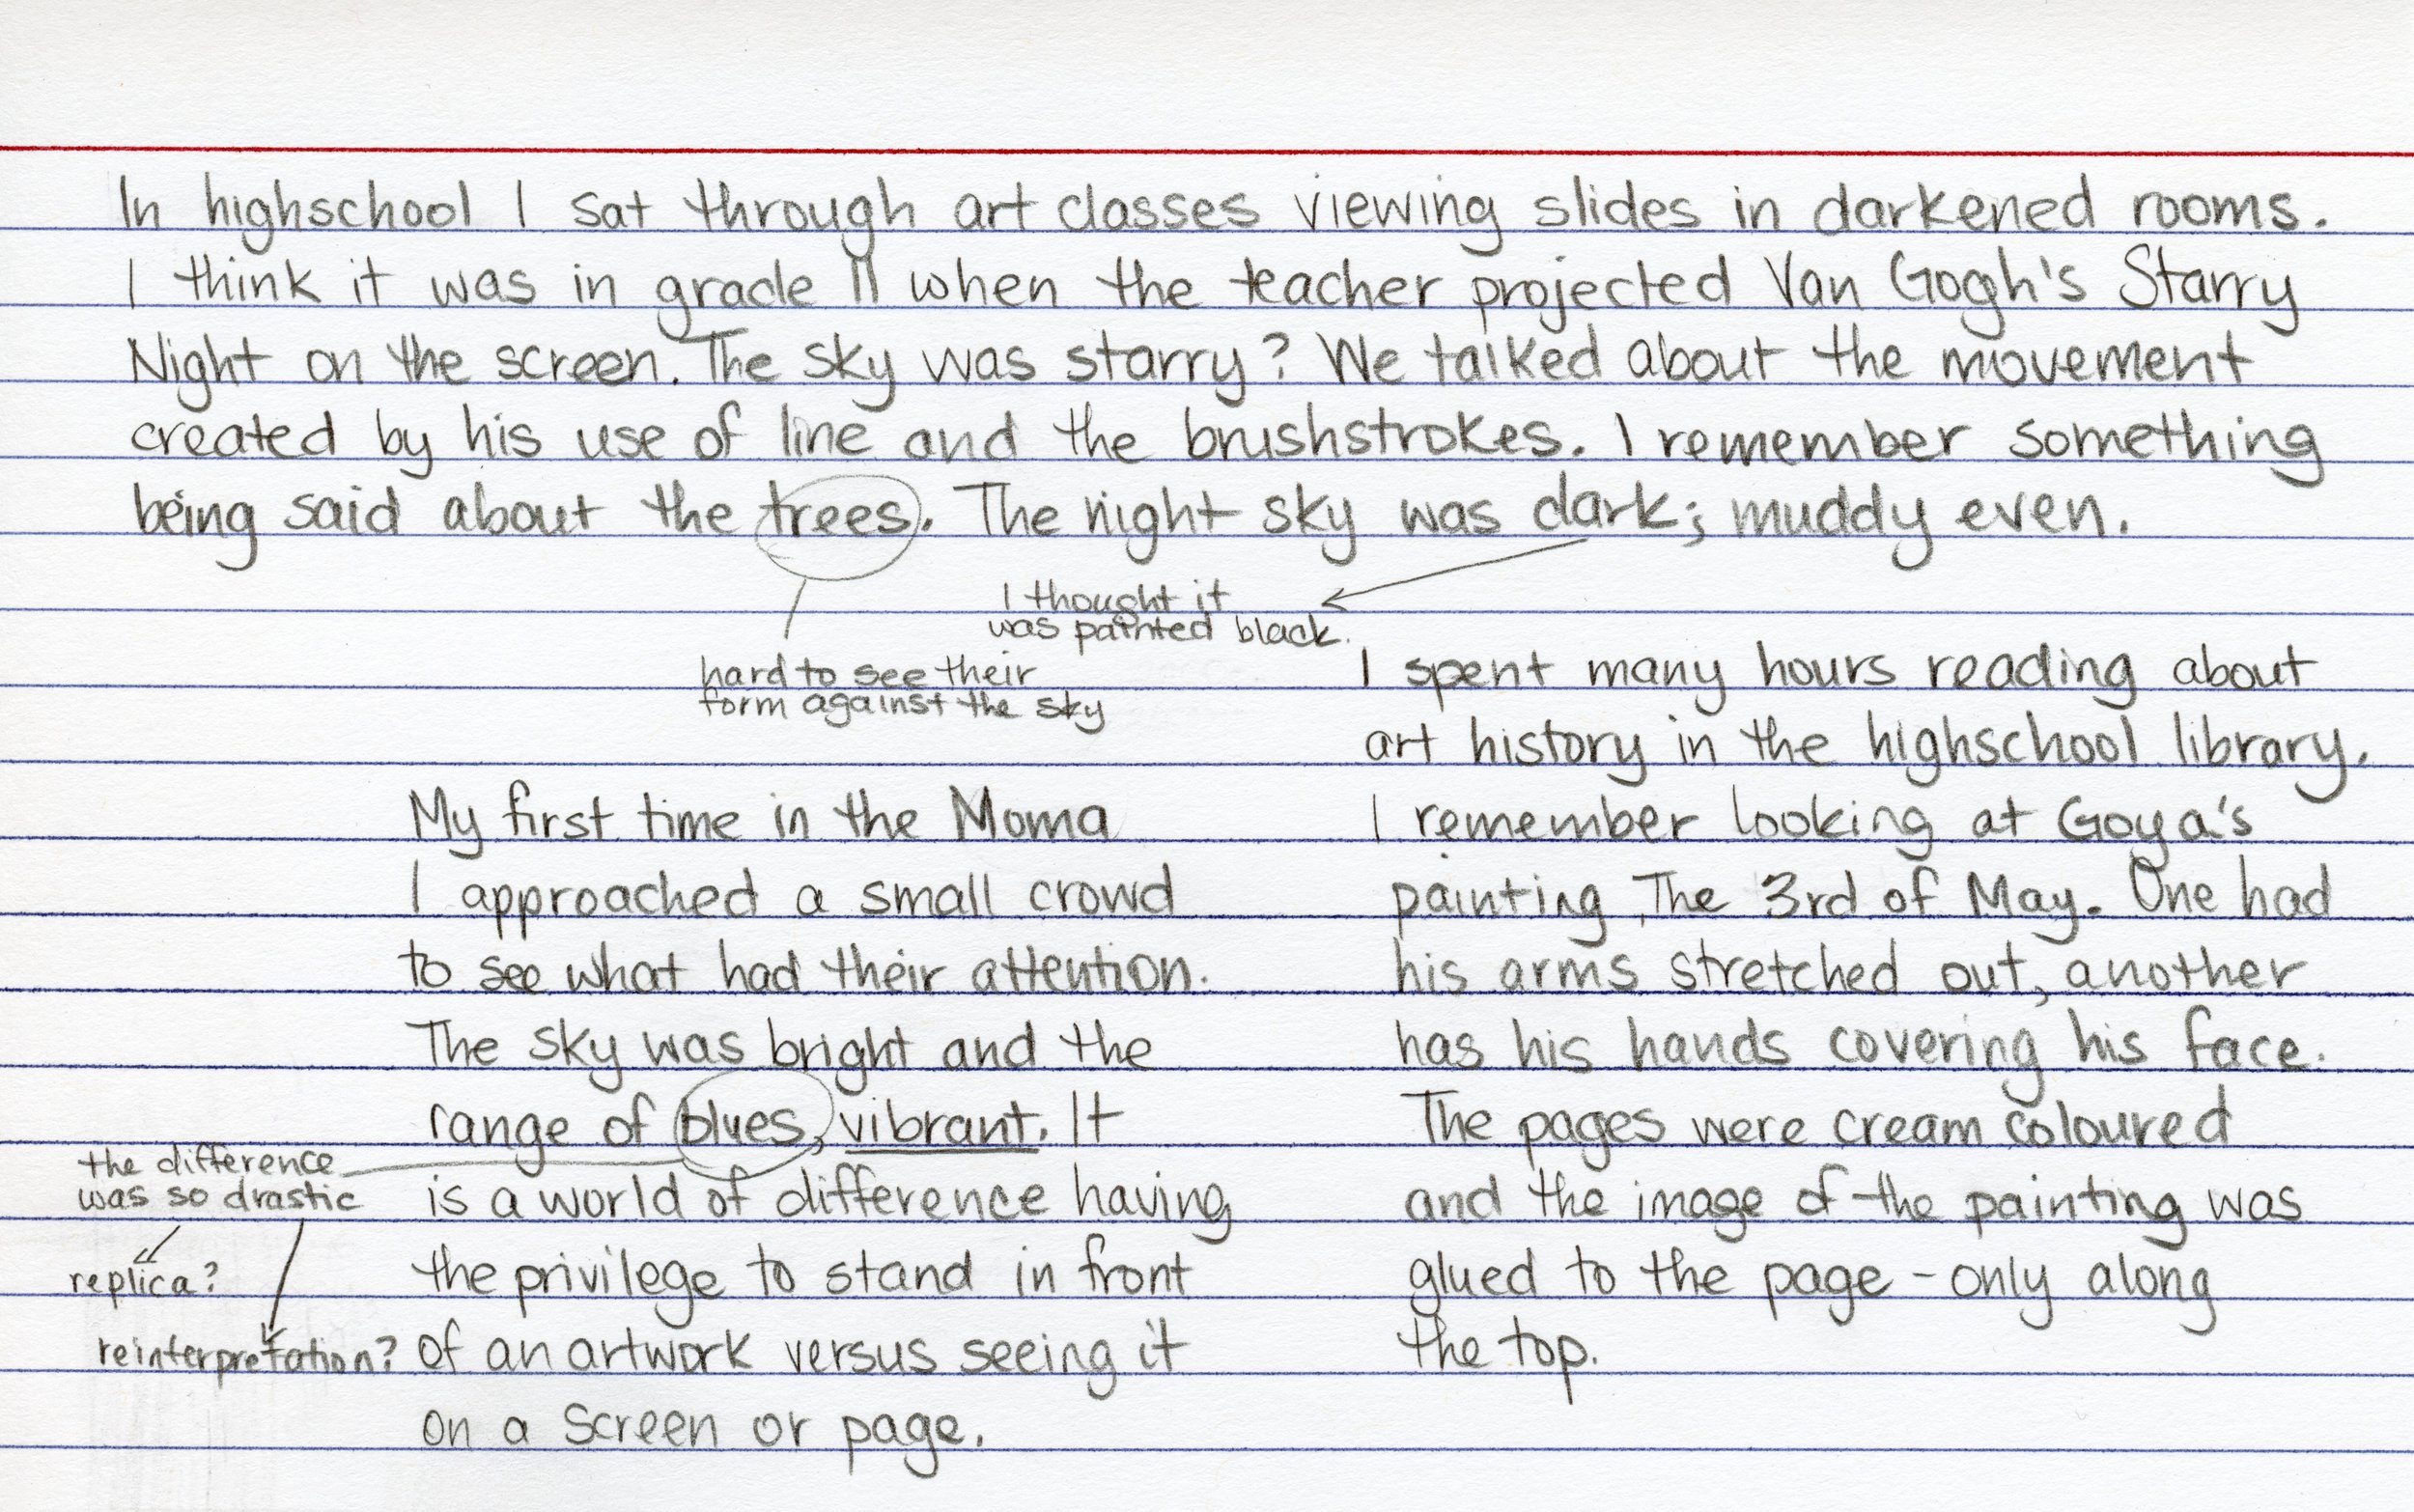 In highschool I sat through art classes viewing slides in darkened rooms.
I think it was in grade 11 when the teacher projected Van Gogh's Starry
Night on the screen. The sky was starry? We talked about the movement
created by his use of line and the brushstrokes. I remember something
being said about the trees. The night sky was dark; muddy even.
I thought it
was painted black.
hard to see their
form against the sky
My first time in the Moma
I approached a small crowd
to see what had their attention.
The sky was bright and the
range of blues, vibrant. It
is a world of difference having
the privilege to stand in front
of an artwork versus seeing it
on a screen or page.
the difference
was so drastic
replica?
reinterpretation?
I spent many hours reading about
art history in the highschool library.
I remember looking at Goya's
painting The 3rd of May. One had
his arms stretched out, another
has his hands covering his face.
The pages were cream coloured
and the image of the painting was
glued to the page - only along
the top.